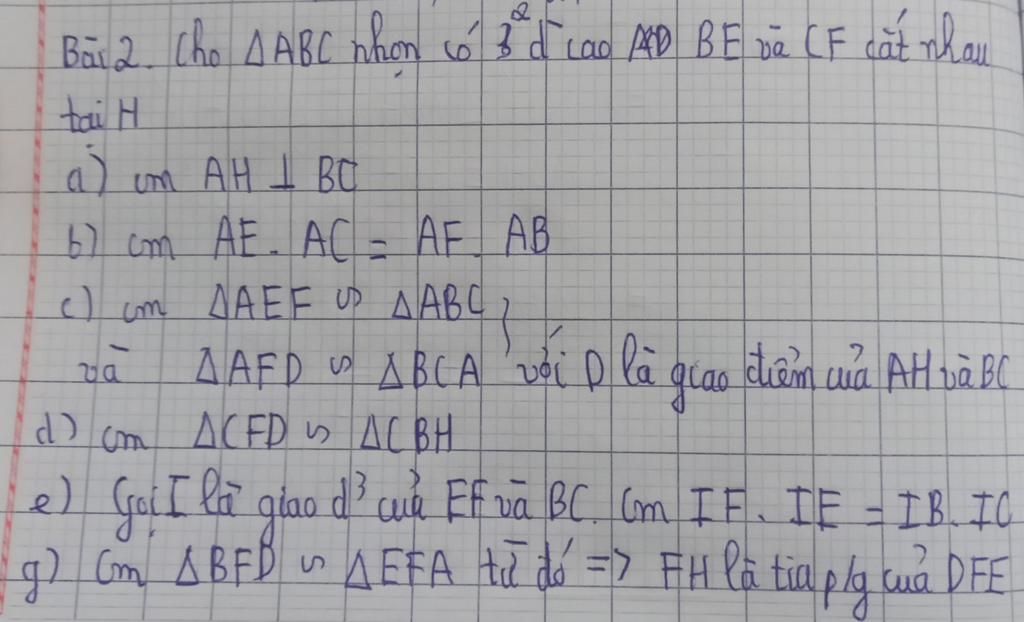 Bài 2. Cho ΔABC nhọn có 2 đ cao BE và CF cắt nhau
tại H
a) cm AH ⊥ BC
b) cm AE. AC = AF. AB
c) cm ΔAEF ∽ ΔABC }
và ΔAFD ∽ ΔBCA với D là giao điểm của AH và BC
d) cm ΔCFD ∽ ΔCBH
e) Gọi I là giao đ³ của EF và BC. Cm IF. IE = IB. IC
g) Cm ΔBFD ∽ ΔEFA từ đó => FH là tia p/g của DFE